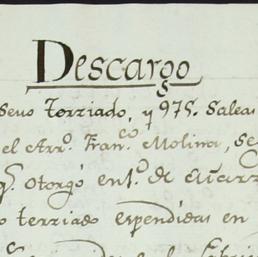 Descargo
seuo Terziado, y 975. Saleas
el Arr.º Fran.co Molina, se
q.e otorgó en 1.º de
o terziado espendidas en